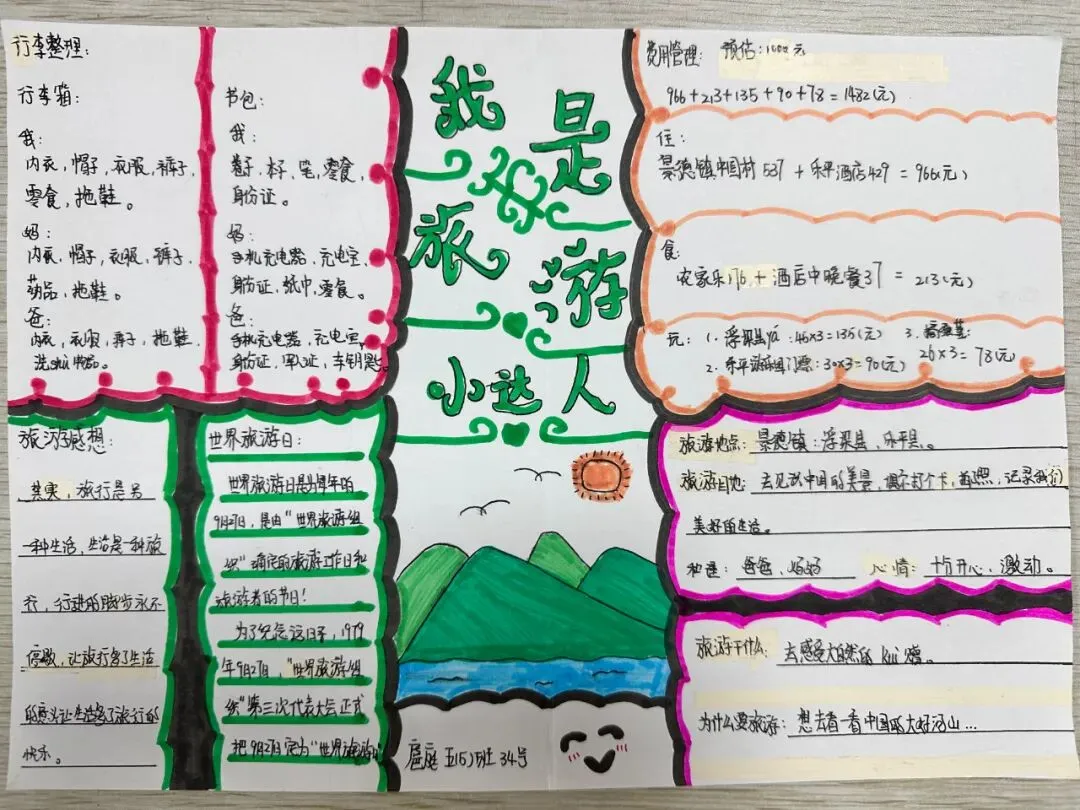 行李整理：
行李箱：
我：
内衣，帽子，衣服，裤子，
零食，拖鞋。
妈：
内衣，帽子，衣服，裤子，
药品，拖鞋。
爸：
内衣，衣服，裤子，拖鞋，
洗漱用品。
书包：
我：
卷子，本子，笔，零食，
身份证。
妈：
手机充电器，充电宝，
身份证，纸巾，零食。
爸：
手机充电器，充电宝，
身份证，军人证，车钥匙。
我是
旅游
小达人
费用管理： 预估：1000元
966+213+135+90+78=1482(元)
住：
景德镇中国村537+乐平酒店429=966(元)
食：
农家乐176+酒店中晚餐37=213(元)
玩：1. 浮梁县衙：45×3=135(元) 3.
26×3=78(元)
2. 乐平游乐园门票：30×3=90(元)
旅游感想：
其实，旅行是另
一种生活，生活是一种旅
行，行进的脚步永不
停歇，让旅行多了生活
的意义让生活多了旅行的
快乐。
世界旅游日：
世界旅游日是每年的
9月27日，是由“世界旅游组
织”确定的旅游工作日和
旅游者的节日！
为了纪念这日子，1979
年9月27日，“世界旅游组
织”第三次代表大会正式
把9月27日定为“世界旅游日
扈庭 五(5)班 34号
旅游地点：景德镇：浮梁县、乐平县。
旅游目地：去见识中国的美景，偶尔打个卡，拍照，记录我们
美好的生活。
和谁：爸爸，妈妈 心情：十分开心，激动。
旅游干什么：去感受大自然的
为什么要旅游：想去看一看中国的大好河山...